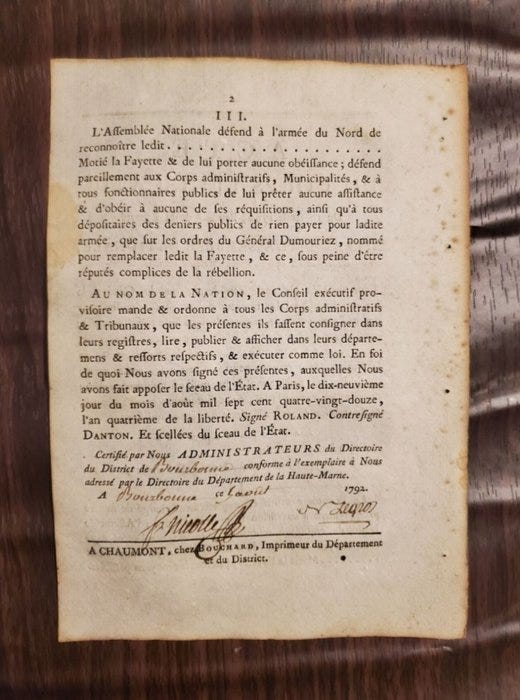 2
III.
L'Aſſemblée Nationale défend à l'armée du Nord de
reconnoître ledit. . . . . . . . . . . . . . . . . . . . .
Motié la Fayette & de lui porter aucune obéiſſance ; défend
pareillement aux Corps adminiſtratifs, Municipalités, & à
tous fonctionnaires publics de lui prêter aucune aſſiſtance
& d'obéir à aucune de ſes réquiſitions, ainſi qu'à tous
dépoſitaires des deniers publics de rien payer pour ladite
armée, que ſur les ordres du Général Dumouriez, nommé
pour remplacer ledit la Fayette, & ce, ſous peine d'être
réputés complices de la rébellion.
AU NOM DE LA NATION, le Conſeil exécutif pro-
viſoire mande & ordonne à tous les Corps adminiſtratifs
& Tribunaux, que les préſentes ils faſſent conſigner dans
leurs regiſtres, lire, publier & afficher dans leurs départe-
mens & reſſorts reſpectifs, & exécuter comme loi. En foi
de quoi Nous avons ſigné ces préſentes, auxquelles Nous
avons fait appoſer le ſceau de l'État. A Paris, le dix-neuvième
jour du mois d'août mil ſept cent quatre-vingt-douze,
l'an quatrième de la liberté. Signé ROLAND. Contreſigné
DANTON. Et ſcellées du ſceau de l'État.
Certifié par Nous ADMINISTRATEURS du Directoire
du Diſtrict de Bourbonne conforme à l'exemplaire à Nous
adreſſé par le Directoire du Département de la Haute-Marne.
A Bourbonne ce aout 1792.
Nicolle
A CHAUMONT, chez BOUCHARD, Imprimeur du Département
et du Diſtrict.